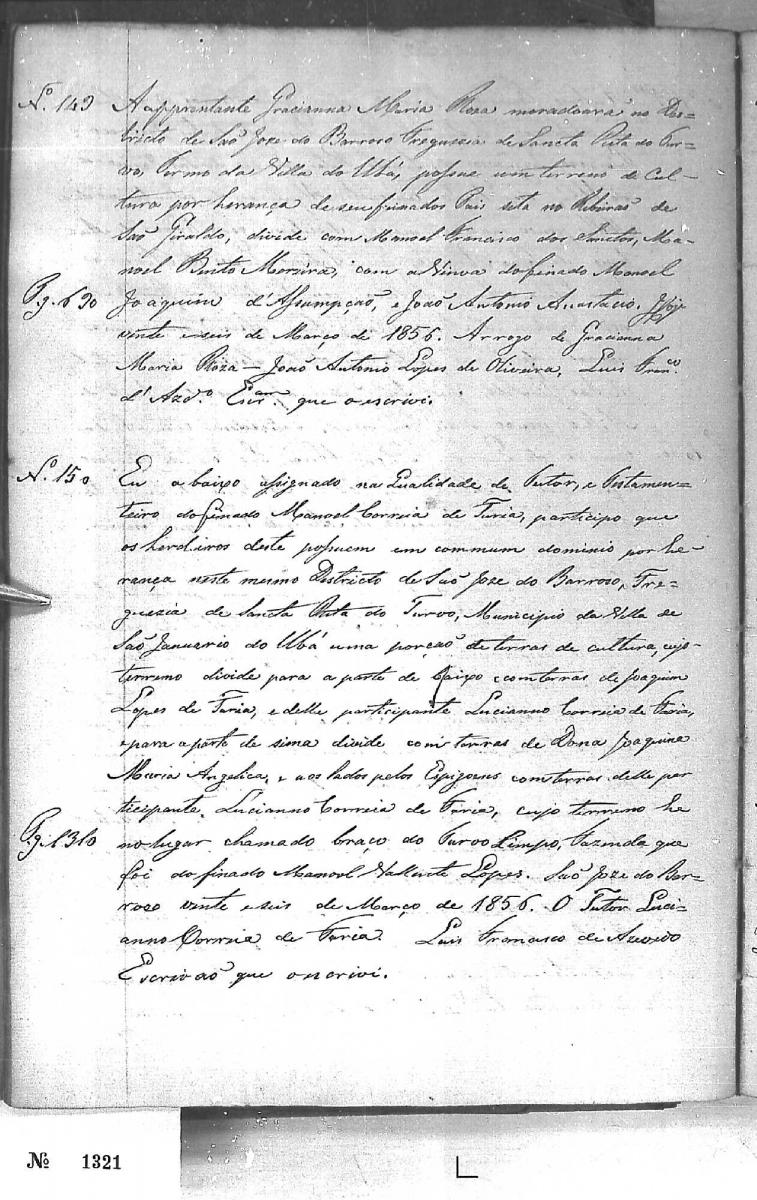 Nº. 149 A apprentante Gracianna Maria Roza moradoura no Des=
tricto de Saõ Joze do Barrozo Freguezia de Sancta Rita do Tur=
vo, Termo da Villa do Ubá, possue um terreno de Cul=
tura por herança de seus finados Pais sita no Ribeiraõ de
Saõ Giraldo, divide com Manoel Francisco dos Sanctos, Ma=
noel Bento Moreira, com a Viuva do finado Manoel
Pg. 690 Joaquim d'Assumpçaõ, e Joaõ Antonio Anastacio. Hoje
vinte e seis de Março de 1856. Arrogo de Gracianna
Maria Roza — Joaõ Antonio Lopes de Oliveira, Luis Franco.
d'Azdo. Escram. que o escrivi.
Nº. 150 Eu a baixo assignado na Qualidade de Tutor, e Testamen=
teiro do finado Manoel Correia de Faria, participo que
os herdeiros deste possuem em commum dominio por he=
rança neste mesmo Districto de Saõ Joze do Barrozo, Fre=
guezia de Sancta Rita do Turvo, Municipio da Villa de
Saõ Januario do Ubá uma porçaõ de terras de cultura, cujo
terreno divide para a parte de baixo com terras de Joaquim
Lopes de Faria, e delle participante Lucianno Correia de Faria,
e para a parte de sima divide com terras de Dona Joaquina
Maria Angelica, e aos lados pelos Espigoens com terras delle par
ticipante. Lucianno Correia de Faria, cujo terreno he
Pg. 1310 no lugar chamado braço do Turvo Limpo, Fazenda que
foi do finado Manoel Vallente Lopes. Saõ Joze do Bar=
rozo vinte e seis de Março de 1856. O Tutor Luci=
anno Correia de Faria. Luis Francisco de Azevedo
Escrivaõ que o escrivi.
Nº 1321